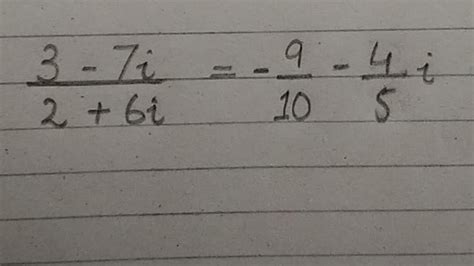 3 - 7i / 2 + 6i = - 9/10 - 4/5 i